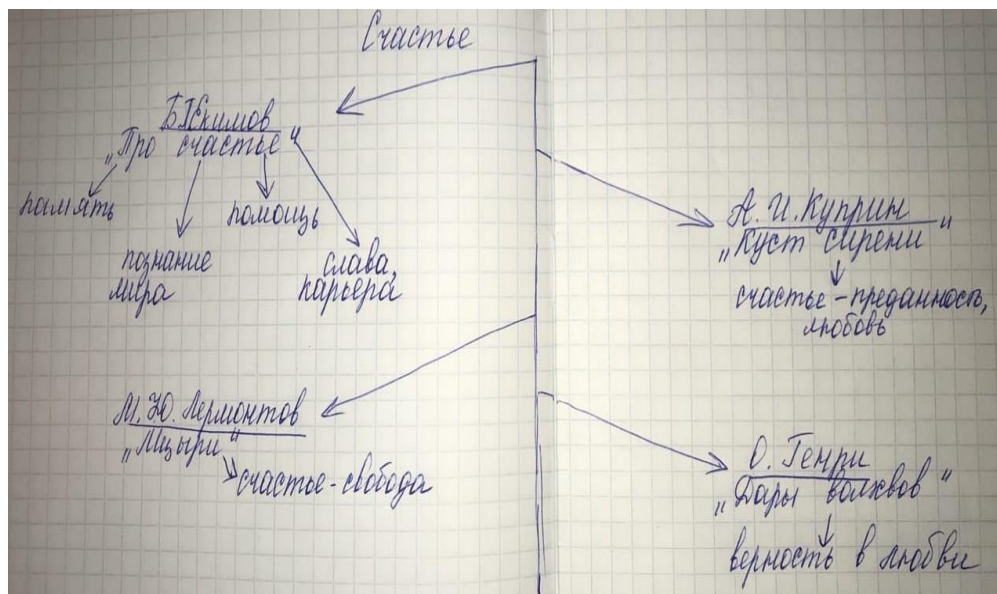 Счастье
Б.Екимов
„Про счастье"
память
помощь
познание
мира
слава,
карьера
А. И. Куприн
„Куст сирени"
счастье - преданность,
любовь
М. Ю. Лермонтов
„Мцыри"
счастье - свобода
О. Генри
„Дары волхвов"
верность в любви